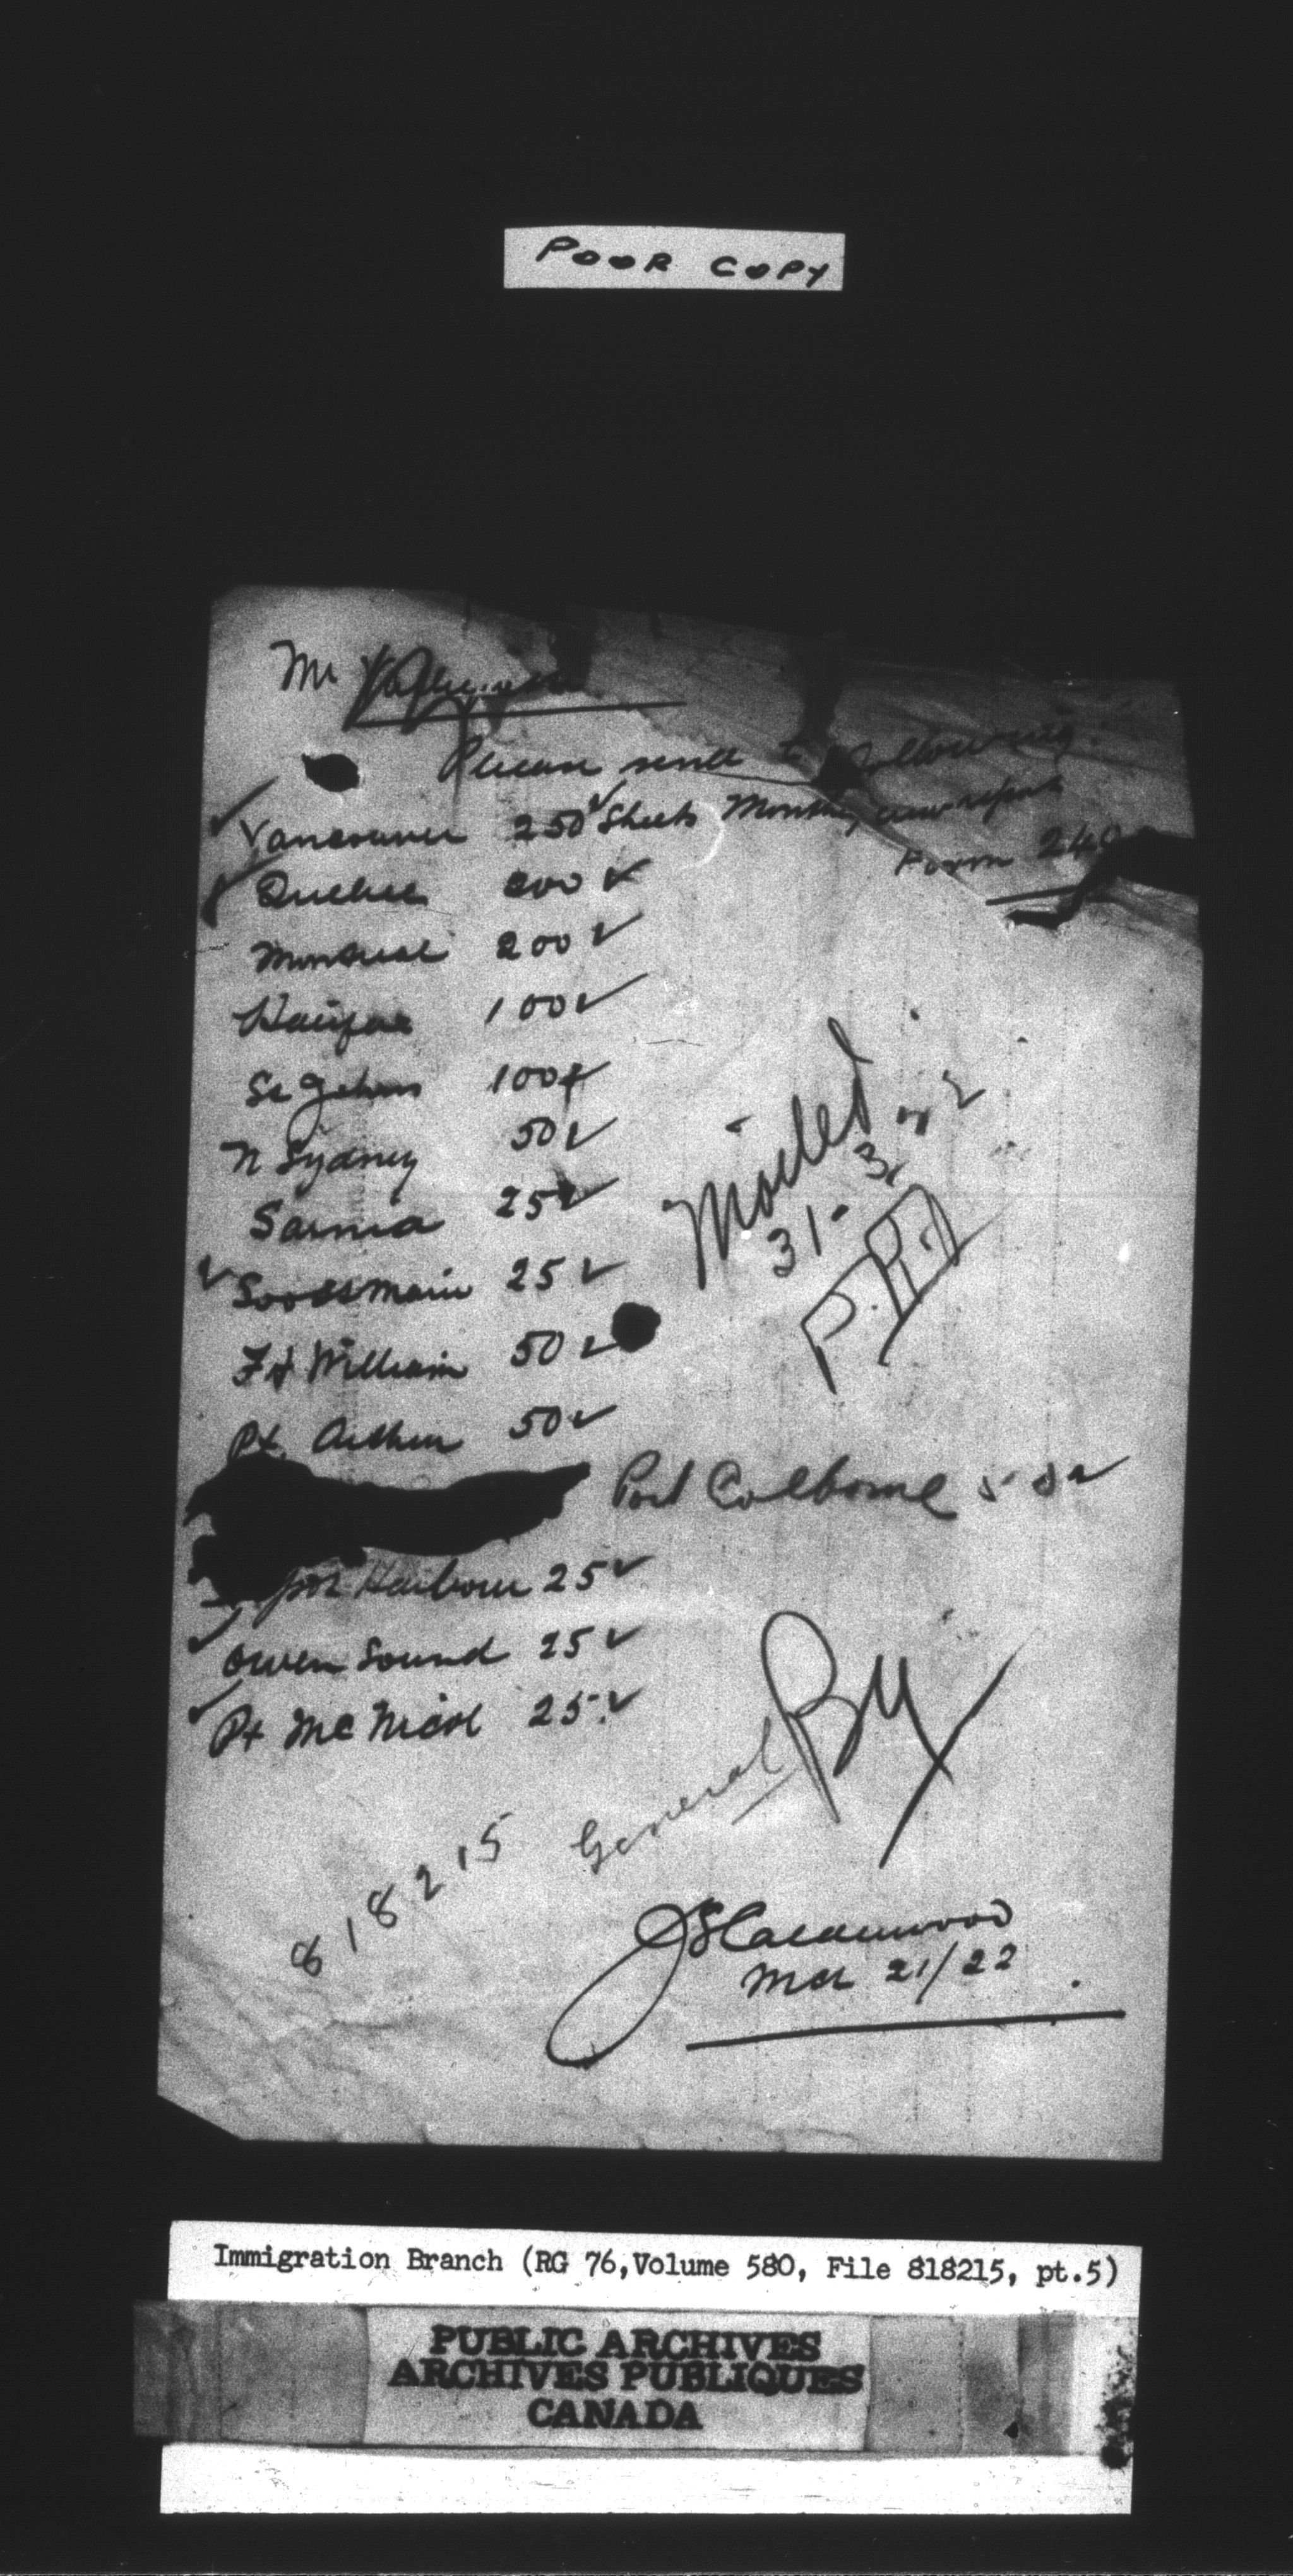 POOR COPY
Mr
Please send to following:
✓ Vancouver 250 ✓ Sheets Monthly
Form 240
✓ Quebec 200 ✓
Montreal 200 ✓
Halifax 100 ✓
St Johns 100 ✓
N Sydney 50 ✓
Sarnia 25 ✓
✓ Soo Ste Marie 25 ✓
Ft William 50 ✓
Pt. Arthur 50 ✓
Port Colborne 50 ✓
Harbour 25 ✓
✓ Owen Sound 25 ✓
✓ Pt McNicol 25 ✓
Mailed
31. 3 22
General
818215
JSCalderwood
Mch 21/22
Immigration Branch (RG 76,Volume 580, File 818215, pt.5)
PUBLIC ARCHIVES
ARCHIVES PUBLIQUES
CANADA